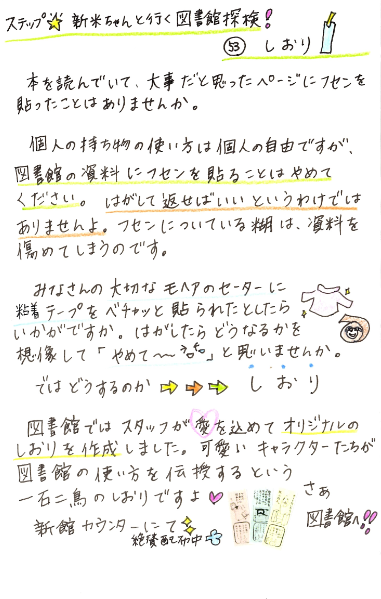 ステップ☆新米ちゃんと行く図書館探検!
53 しおり
本を読んでいて、大事だと思ったページにフセンを
貼ったことはありませんか。
個人の持ち物の使い方は個人の自由ですが、
図書館の資料にフセンを貼ることはやめて
ください。はがして返せばいいというわけでは
ありませんよ。フセンについている糊は、資料を
傷めてしまうのです。
みなさんの大切なモヘアのセーターに
粘着テープをベチャッと貼られたとしたら
いかがですか。はがしたらどうなるかを
想像して「やめて〜」と思いませんか。
ではどうするのか→→→しおり
図書館ではスタッフが愛を込めてオリジナルの
しおりを作成しました。可愛いキャラクターたちが
図書館の使い方を伝授するという
一石二鳥のしおりですよ♥
新館カウンターにて
絶賛配布中
さぁ
図書館へ!!